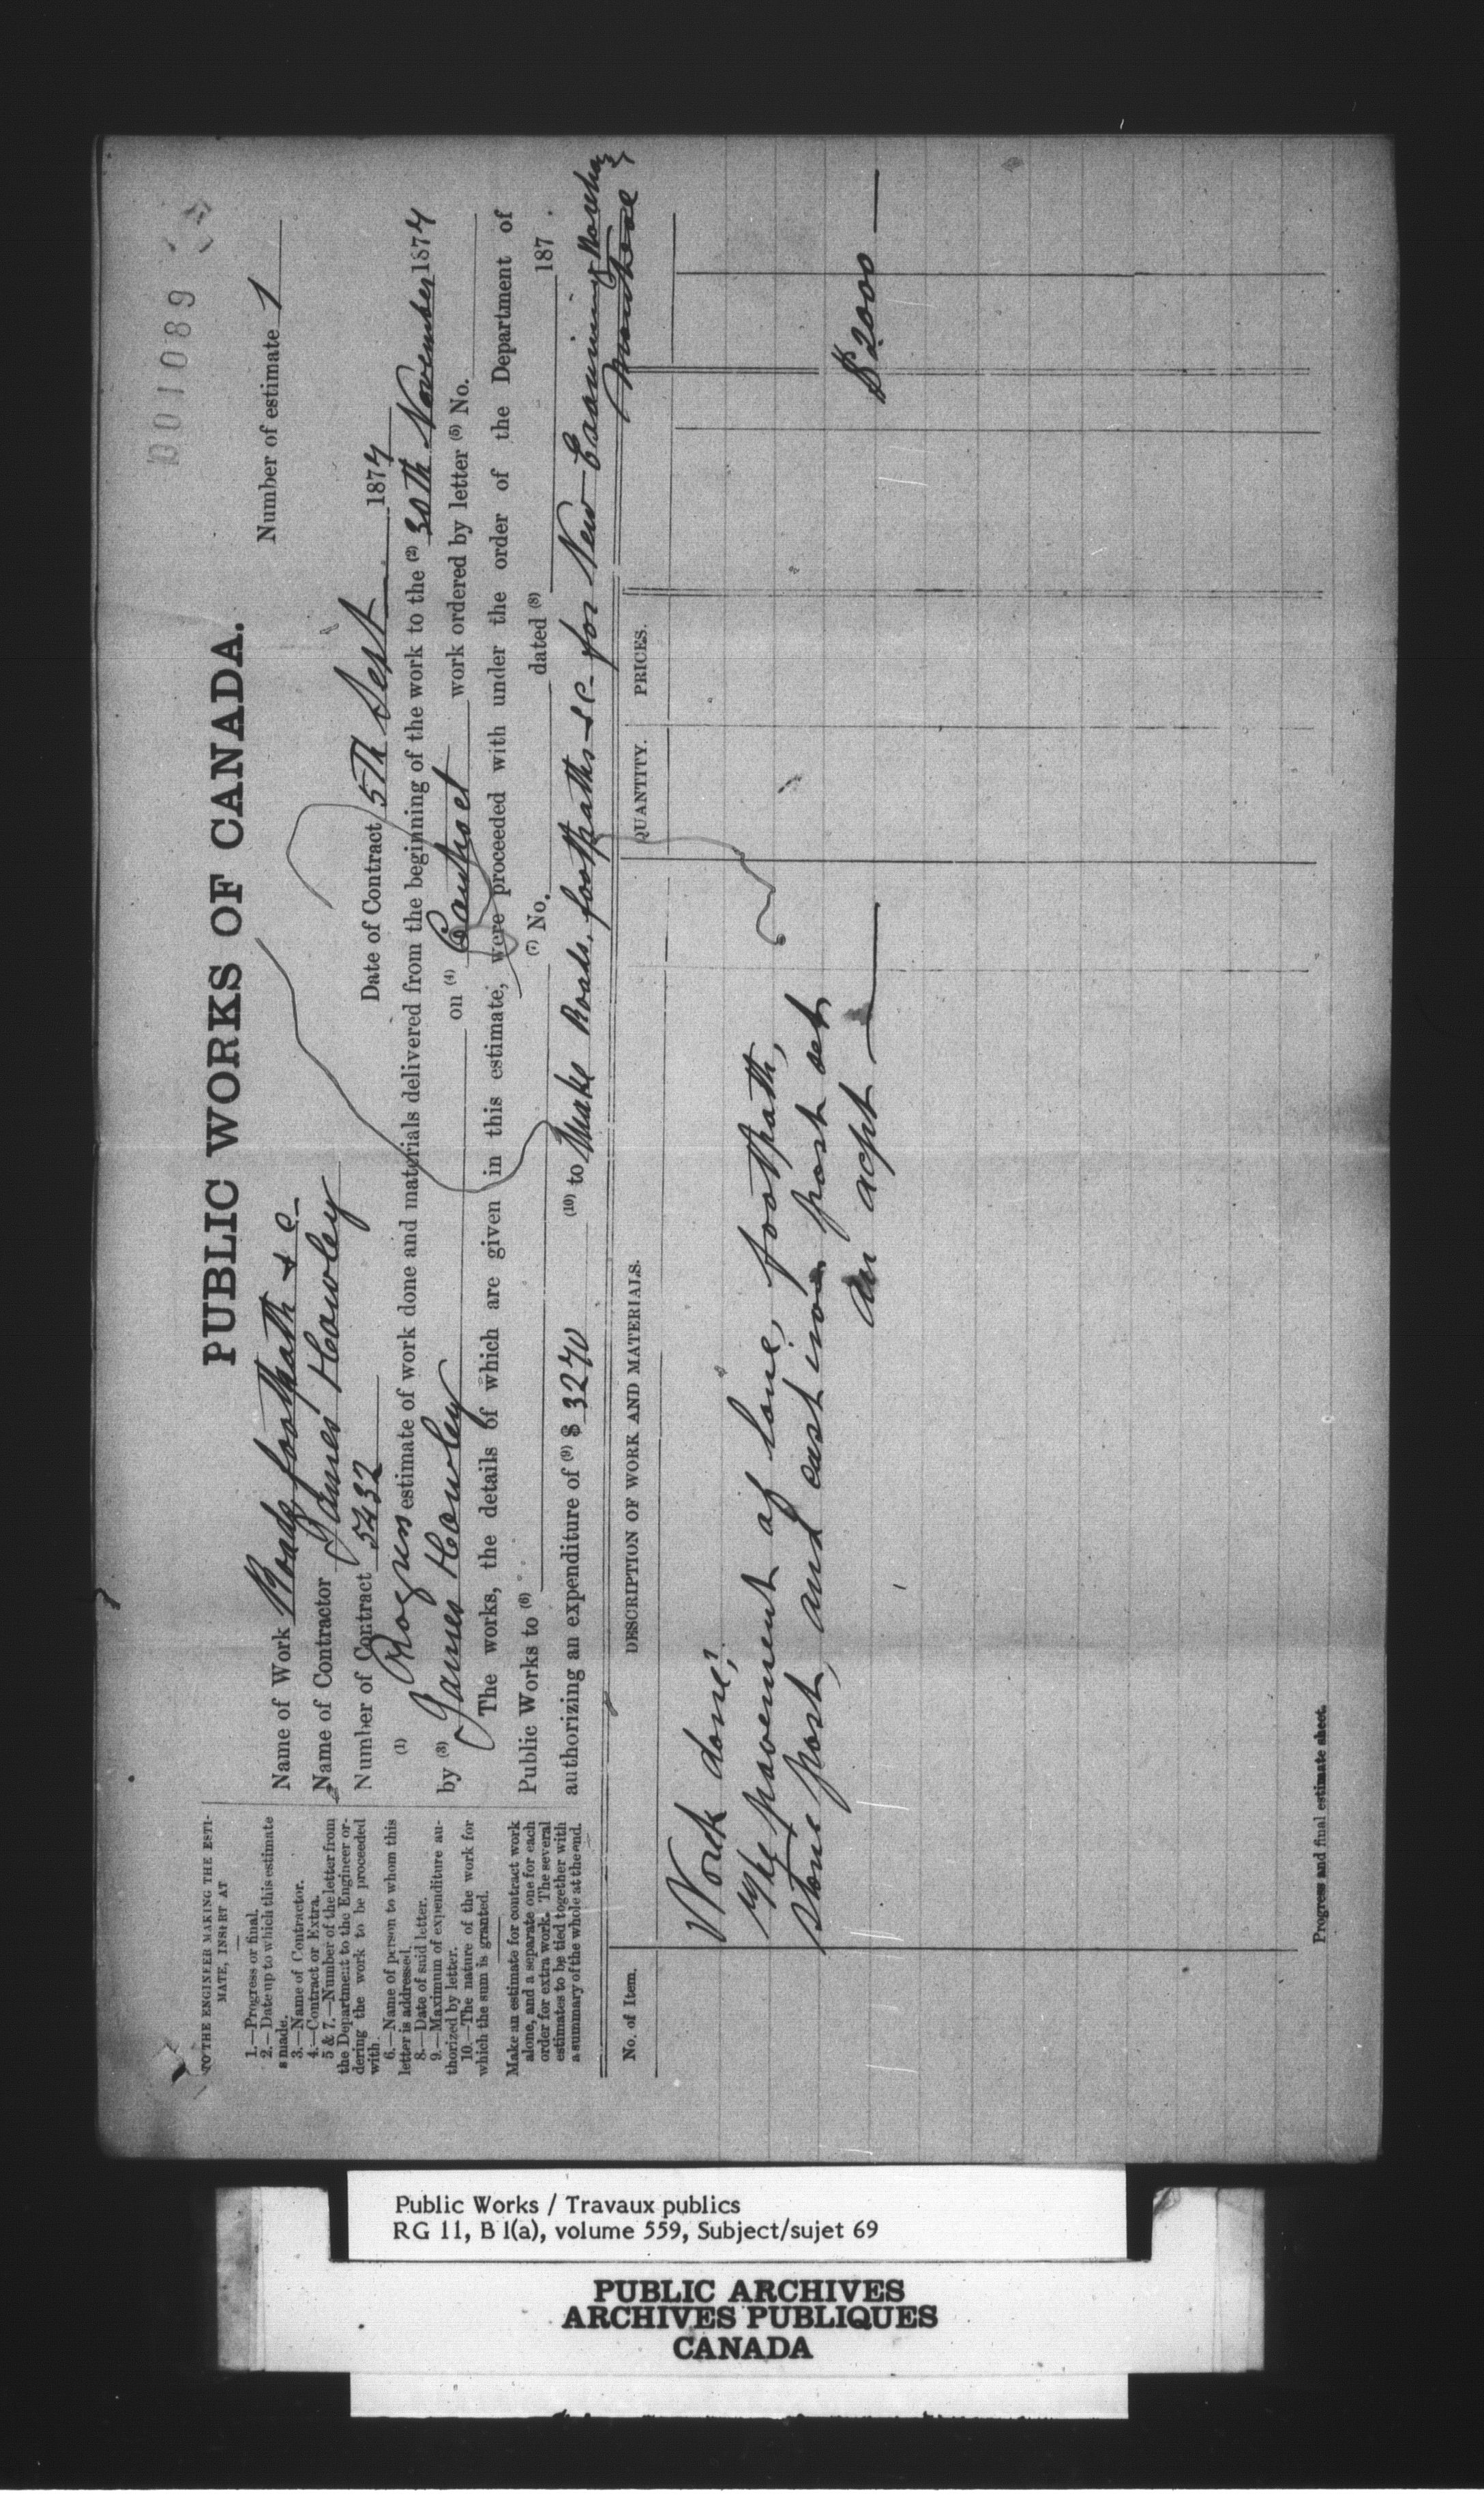 001089
PUBLIC WORKS OF CANADA.
TO THE ENGINEER MAKING THE ESTI-
MATE, INSERT AT
1.—Progress or final.
2.—Date up to which this estimate
s made.
3.—Name of Contractor.
4.—Contract or Extra.
5 & 7.—Number of the letter from
the Department to the Engineer or-
dering the work to be proceeded
with.
6.—Name of person to whom this
letter is addressed.
8.—Date of said letter.
9.—Maximum of expenditure au-
thorized by letter.
10.—The nature of the work for
which the sum is granted.
Make an estimate for contract work
alone, and a separate one for each
order for extra work. The several
estimates to be tied together with
a summary of the whole at the end.
Name of Work Roads footpath & c-
Number of estimate 1
Name of Contractor James Howley
Number of Contract 5432
Date of Contract 5th Sept 1874
(1) Progress estimate of work done and materials delivered from the beginning of the work to the (2) 30th November 1874
by (3) James Howley on (4) Contract work ordered by letter (5) No.
The works, the details of which are given in this estimate, were proceeded with under the order of the Department of
Public Works to (6) (7) No. dated (8) 187 .
authorizing an expenditure of (9) $ 3270 (10) to Make Roads, footpaths & c- for New Examining Warehouse
No. of Item. DESCRIPTION OF WORK AND MATERIALS. QUANTITY. PRICES.
Work done,
The pavement of lane, footpath,
stone post, and cast iron post set
an acpt — $2000 —
Progress and final estimate sheet.
Public Works / Travaux publics
RG 11, B 1(a), volume 559, Subject/sujet 69
PUBLIC ARCHIVES
ARCHIVES PUBLIQUES
CANADA